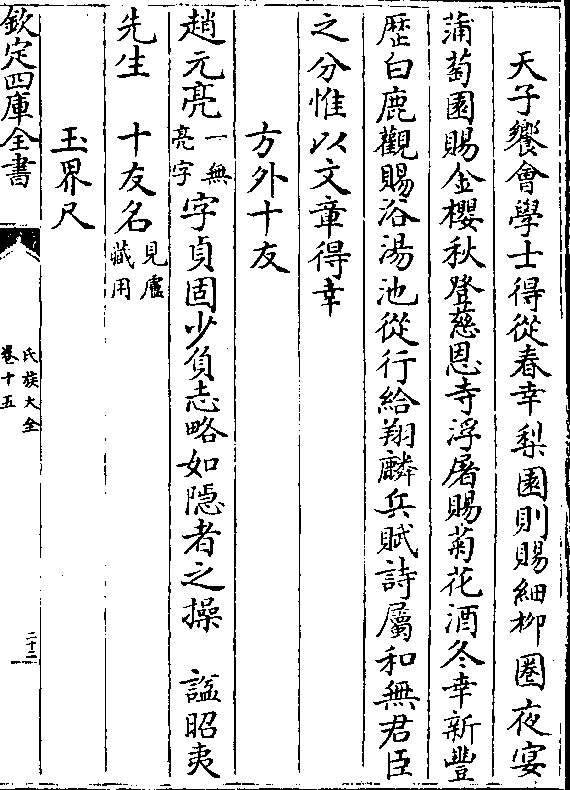 天子饗會學士得從春幸梨園則賜細柳圈夜宴
蒲萄園賜金櫻秋登慈恩寺浮屠賜菊花酒冬幸新豐
歴白鹿觀賜浴湯池從行給翔麟兵賦詩屬和無君臣
之分惟以文章得幸
方外十友
趙元亮一無亮字字貞固少負志略如隱者之操 諡昭夷
先生 十友名見盧藏用
玉界尺
欽定四庫全書
氏族大全
卷十五
二十二